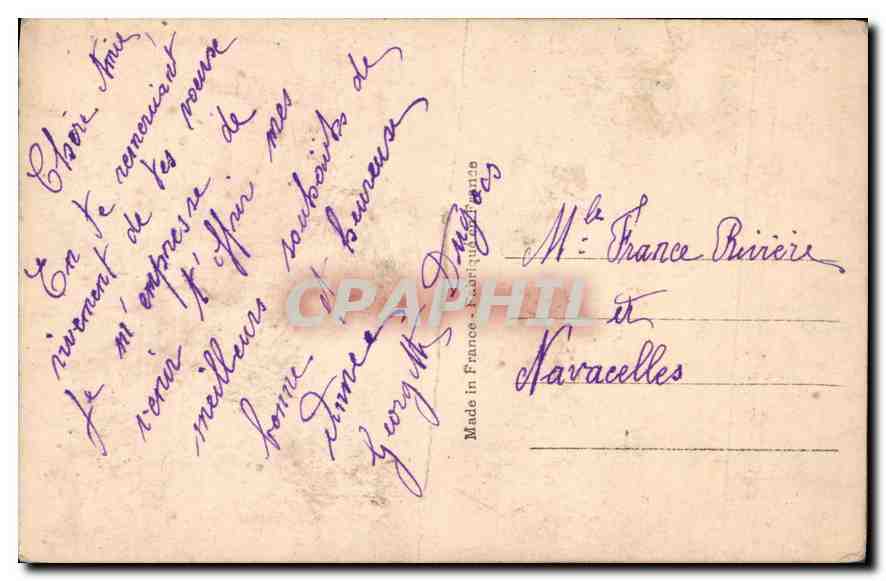 Chère Amie,
En te remerciant
vivement de tes voeux
Je m'empresse de
venir t'offrir mes
meilleurs souhaits de
bonne et heureuse
Année
Georgette
Made in France - Fabriqué en France
CPAPHIL
Mle France Rivière
et
Navacelles